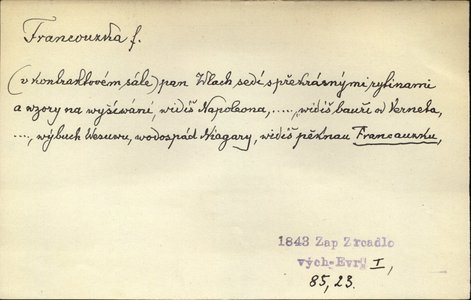 Francouzka f.
(v kontraktovém sále) pan Wlach sedí s překrásnými rytinami
a wzory na wyšíwání, widíš Napoleona, ....., widíš bauři od Verneta,
...., wýbuch Wesuwu, wodospád Niagary, widíš pěknau Francauzku,
1843 Zap Zrcadlo
vých-Evr. I,
85, 23.